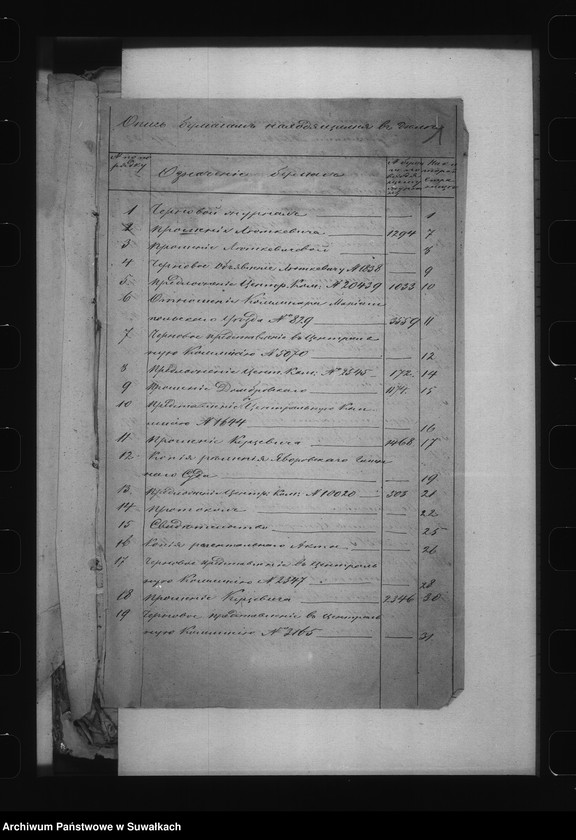 Опись бумагамъ находящимся въ делѣ
№ по порядку
Означеніе бумагъ
1 Черновой журналъ — 1
2 Прошеніе Люткевича 1294 7
3 Прошеніе Люткевичовой — 8
4 Черновое объявленіе Люткевичу № 1838 — 9
5 Предложеніе Центр. Ком. № 20439 1033 10
6 Отношеніе Коммисара Маріам
польского Уѣзда № 829 3559 11
7 Черновое представленіе въ Централь
ную Коммисію № 5070 — 12
8 Предложеніе Центр. Ком. № 2545 172 14
9 Прошеніе Домбровского 15
10 Предложеніе Центральную Ком
мисію № 1644 — 16
11 Прошеніе Керцевича 1468 17
12 Копія рѣшенія Яворовскаго Гмин
наго Суда — 19
13 Предложеніе Центр. Ком. № 10020 303 21
14 Протоколъ — 22
15 Свидѣтельство — 25
16 Копія Акта — 26
17 Черновое представленіе въ Централь
ную Коммисію № 2347 — 28
18 Прошеніе Керцевича 2346 30
19 Черновое представленіе въ Централь
ную Коммисію № 2165 — 31
Archiwum Państwowe w Suwałkach